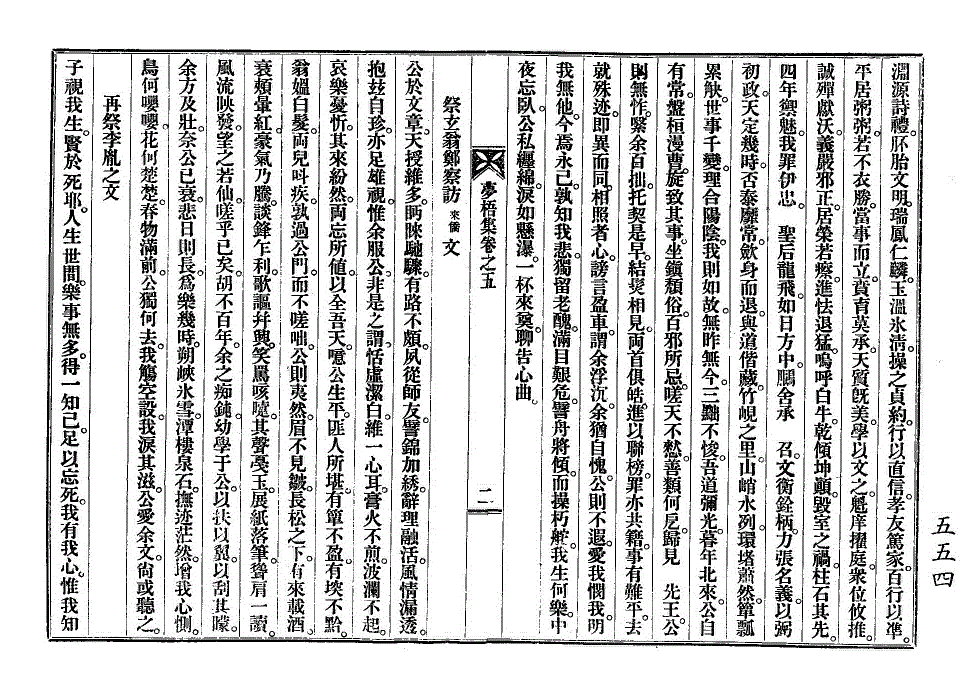 淵源詩禮。胚胎文明。瑞鳳仁麟。玉溫氷淸。操之貞約。行以直信。孝友篤家。百行以準。
平居粥粥。若不衣勝。當事而立。賁育莫承。天質旣美。學以文之。魁庠擢庭。衆位攸推。
誠殫獻沃。義嚴邪正。居榮若瘵。進怯退猛。嗚呼白牛。乾傾坤顚。毀室之禍。柱石其先。
四年禦魅。我罪伊忠。 聖后龍飛。如日方中。賜舍承 召。文衡銓柄。力張名義。以弼
初政。天定幾時。否泰靡常。斂身而退。與道偕藏。竹峴之里。山峭水列。環堵蕭然。簞瓢
累缺。世事千變。理合陽陰。我則如故。無昨無今。三黜不悛。吾道彌光。暮年北來。公自
有常。盤桓漫曹。旋致其事。坐鎭頹俗。百邪所忌。嗟天不憖。善類何戹。歸見 先王。公
則無怍。緊余百拙。托契是早。結髮相見。兩首俱皓。進以聯榜。罪亦共籍。事有難平。去
就殊迹。卽異而同。相照者心。謗言盈車。謂余浮沉。余猶自愧。公則不遐。愛我憫我。明
我無他。今焉永已。孰知我悲。獨留老醜。滿目艱危。譬舟將傾。而操朽舵。我生何樂。中
夜忘臥。公私纒綿。淚如懸瀑。一杯來奠。聊告心曲。
夢梧集卷之五
二
祭玄翁鄭察訪來僑文
公於文章。天授維多。眄睞馳驟。有路不頗。夙從師友。譬錦加綉。辭理融活。風情漏透。
抱玆自珍。亦足雄視。惟余服公。非是之謂。恬虛潔白。維一心耳。膏火不煎。波瀾不起。
哀樂憂忻。其來紛然。兩忘所値。以全吾天。噫公生平。匪人所堪。有簞不盈。有堗不黔。
翁媼白髮。兩兒呌疾。孰過公門。而不嗟咄。公則夷然。眉不見皺。長松之下。有來載酒。
衰頰暈紅。豪氣乃騰。談鋒乍利。歌謳幷興。笑罵咳噦。其聲戞玉。展紙落筆。聳肩一讀。
風流映發。望之若仙。嗟乎已矣。胡不百年。余之痴鈍。幼學于公。以扶以翼。以刮其矇。
余方及壯。奈公已衰。悲日則長。爲樂幾時。朔峽氷雪。潭樓泉石。撫迹茫然。增我心惻。
鳥何嚶嚶。花何楚楚。春物滿前。公獨何去。我觴空設。我淚其滋。公愛余文。尙或聽之。
再祭李胤之文
子視我生。賢於死耶。人生世間。樂事無多。得一知己。足以忘死。我有我心。惟我知
五五四